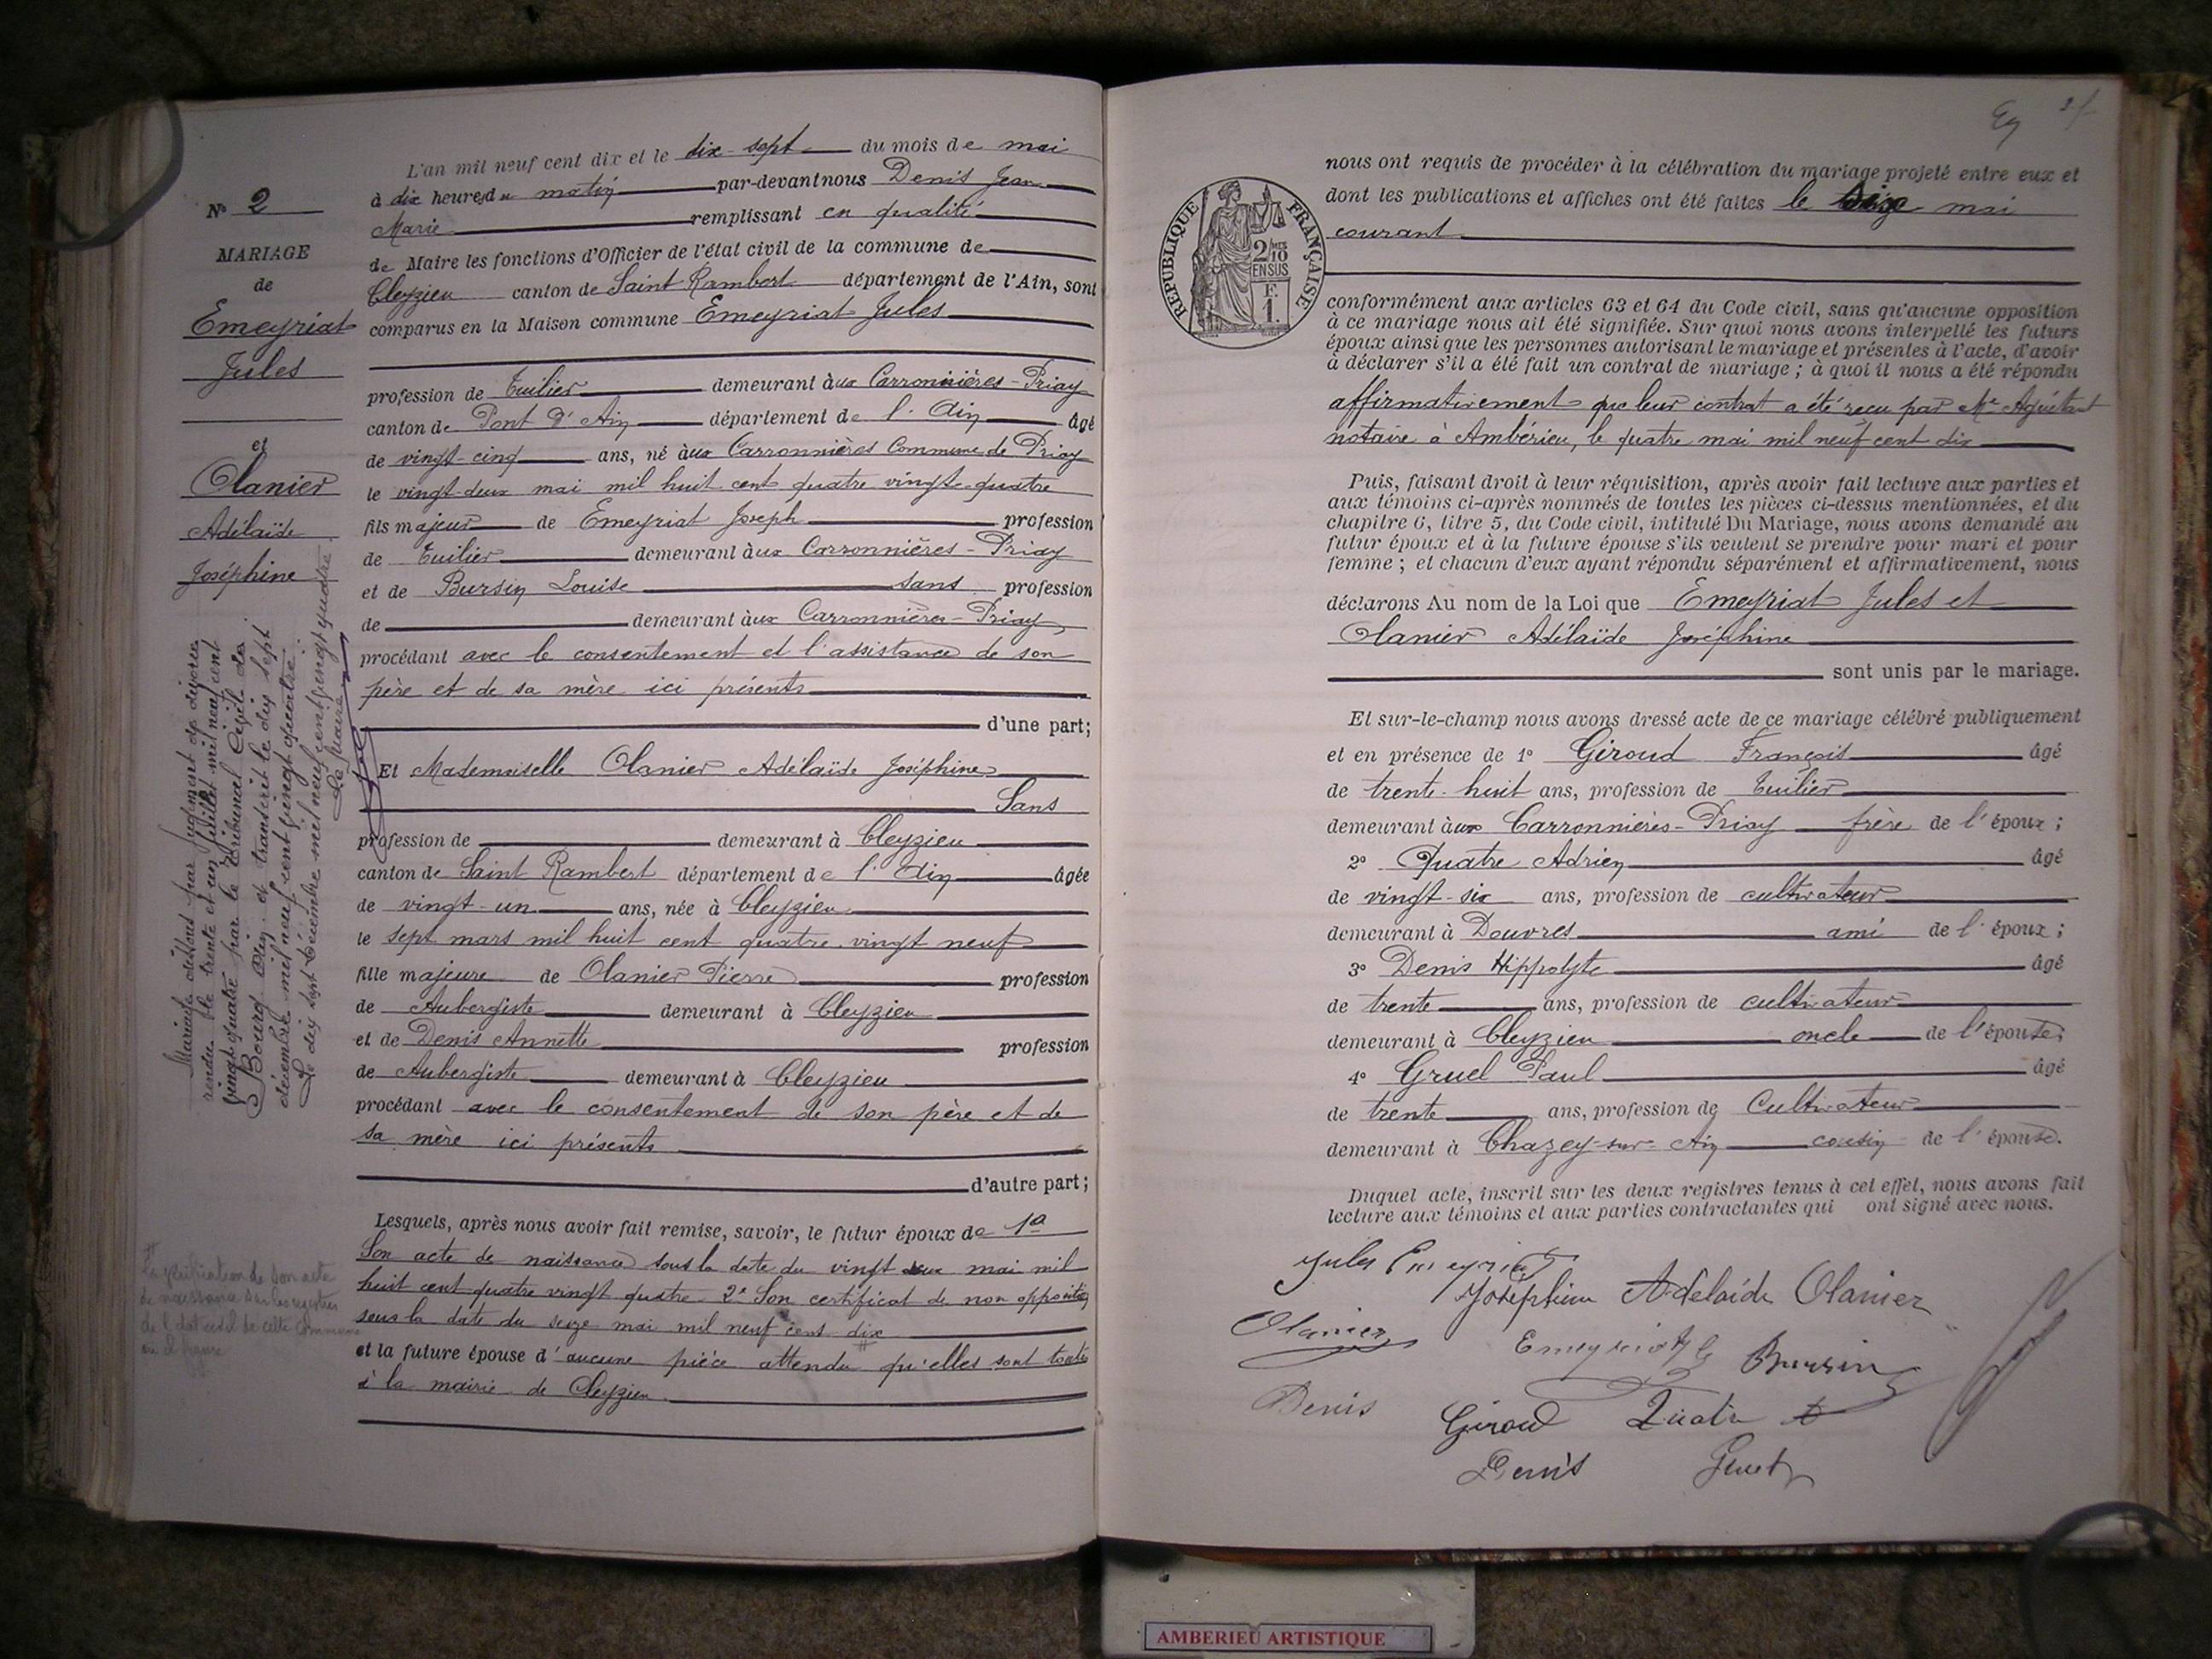 L'an mil neuf cent dix et le dix-sept du mois de mai
à dix heures du matin par-devant nous Denis Jean
Marie remplissant en qualité
de Maire les fonctions d'Officier de l'état civil de la commune de
Cleyzieu canton de Saint Rambert département de l'Ain, sont
comparus en la Maison commune Emeyriat Jules
profession de Tuilier demeurant aux Carronnières - Priay
canton de Pont d'Ain département de l'Ain âgé
de vingt-cinq ans, né aux Carronnières Commune de Priay
le vingt-deux mai mil huit cent quatre vingt-quatre
fils majeur de Emeyriat Joseph profession
de Tuilier demeurant aux Carronnières - Priay
et de Bursin Louise sans profession
de demeurant aux Carronnières - Priay
procédant avec le consentement et l'assistance de son
père et de sa mère ici présents
d'une part;
Et Mademoiselle Olanier Adélaïde Joséphine
Sans
profession de demeurant à Cleyzieu
canton de Saint Rambert département de l'Ain âgée
de vingt-un ans, née à Cleyzieu
le sept mars mil huit cent quatre vingt neuf
fille majeure de Olanier Pierre profession
de Aubergiste demeurant à Cleyzieu
et de Denis Annette profession
de Aubergiste demeurant à Cleyzieu
procédant avec le consentement de son père et de
sa mère ici présents
d'autre part;
Lesquels, après nous avoir fait remise, savoir, le futur époux de 1º
Son acte de naissance sous la date du vingt deux mai mil
huit cent quatre vingt quatre 2º Son certificat de non opposition
sous la date du seize mai mil neuf cent dix
et la future épouse d'aucune pièce attendu qu'elles sont toutes
à la mairie de Cleyzieu
Nº 2
MARIAGE
de
Emeyriat
Jules
et
Olanier
Adélaïde
Joséphine
Mariage dissous par jugement de divorce
rendu le trente et un juillet mil neuf cent
vingt quatre par le Tribunal Civil de
Bourg Ain et transcrit le dix sept
décembre mil neuf cent vingt quatre
Le dix sept décembre mil neuf cent vingt quatre
Le Maire
de naissance sur les registres
de l'état civil de cette commune
Eg
nous ont requis de procéder à la célébration du mariage projeté entre eux et
dont les publications et affiches ont été faites le dix mai
courant
RÉPUBLIQUE FRANÇAISE
2/10
EN SUS
F.
1.
conformément aux articles 63 et 64 du Code civil, sans qu'aucune opposition
à ce mariage nous ait été signifiée. Sur quoi nous avons interpellé les futurs
époux ainsi que les personnes autorisant le mariage et présentes à l'acte, d'avoir
à déclarer s'il a été fait un contrat de mariage; à quoi il nous a été répondu
affirmativement que leur contrat a été reçu par Me Aguétant
notaire à Ambérieu, le quatre mai mil neuf cent dix
Puis, faisant droit à leur réquisition, après avoir fait lecture aux parties et
aux témoins ci-après nommés de toutes les pièces ci-dessus mentionnées, et du
chapitre 6, titre 5, du Code civil, intitulé Du Mariage, nous avons demandé au
futur époux et à la future épouse s'ils veulent se prendre pour mari et pour
femme; et chacun d'eux ayant répondu séparément et affirmativement, nous
déclarons Au nom de la Loi que Emeyriat Jules et
Olanier Adélaïde Joséphine
sont unis par le mariage.
Et sur-le-champ nous avons dressé acte de ce mariage célébré publiquement
et en présence de 1º Giroud François âgé
de trente-huit ans, profession de Tuilier
demeurant aux Carronnières - Priay frère de l'époux;
2º Quatre Adrien âgé
de vingt-six ans, profession de cultivateur
demeurant à Douvres ami de l'époux;
3º Denis Hippolyte âgé
de trente ans, profession de cultivateur
demeurant à Cleyzieu oncle de l'épouse;
4º Gruel Paul âgé
de trente ans, profession de Cultivateur
demeurant à Chazey-sur-Ain cousin de l'épouse.
Duquel acte, inscrit sur les deux registres tenus à cet effet, nous avons fait
lecture aux témoins et aux parties contractantes qui ont signé avec nous.
Jules Emeyriat
Joséphine Adelaïde Olanier
Olanier Emeyriat Bursin
Denis Giroud Quatre
Denis Gruel
AMBERIEU ARTISTIQUE